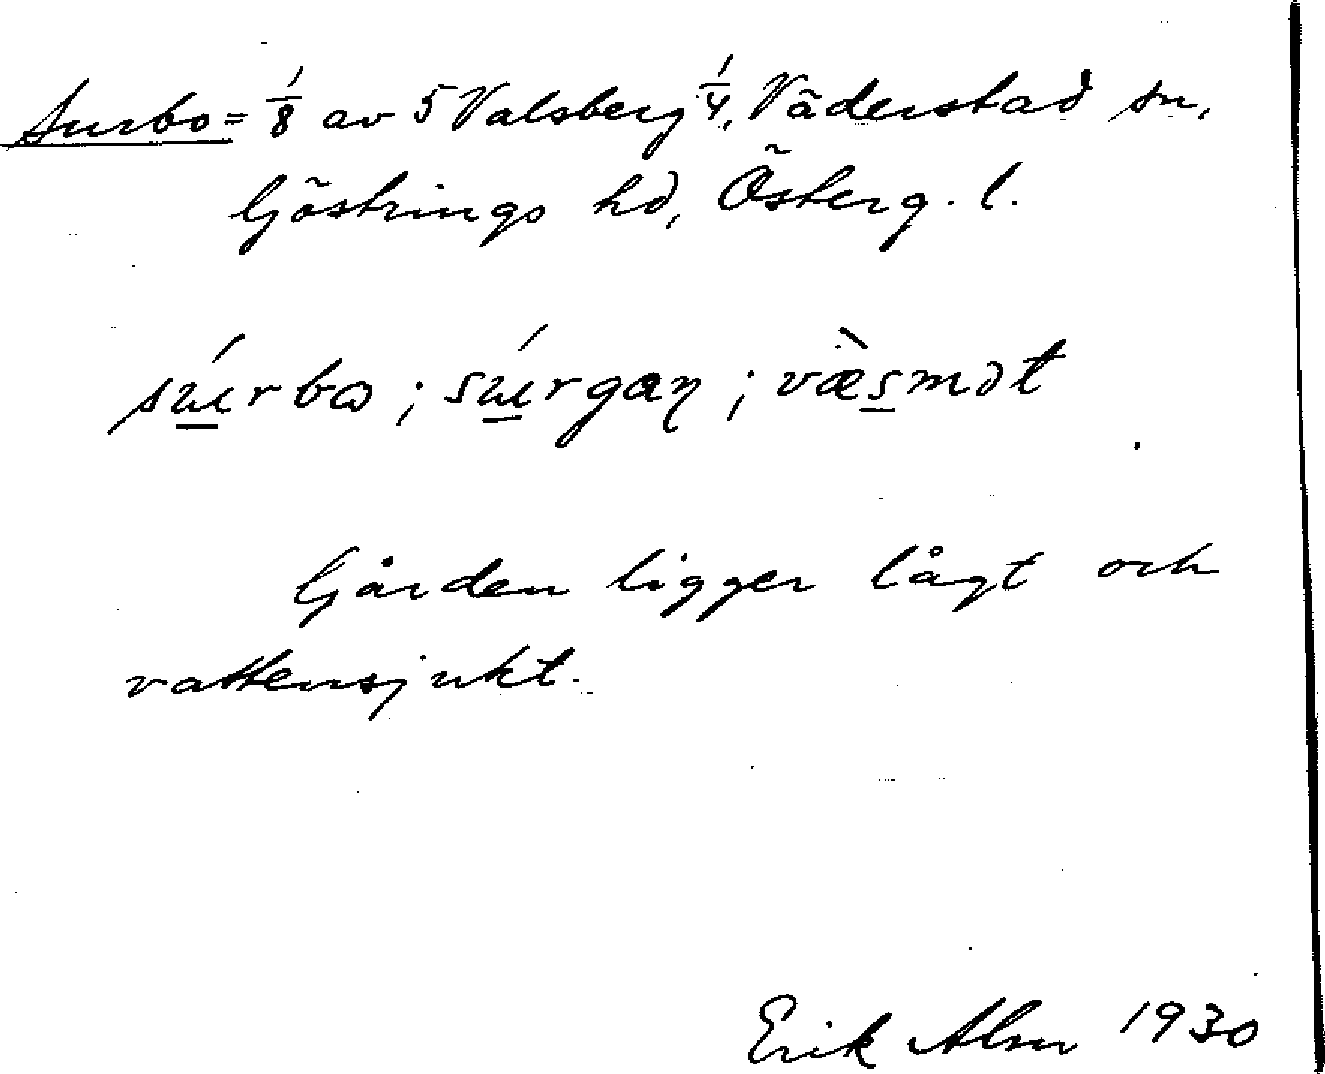 Surbo = 1/8 av 5 Valsberg 1/4, Väderstad sn,
Göstrings hd, Österg. l.
sú̲rbɷ ; sú̲rgaŋ ; væ̀s̲mɔt
Gården ligger lågt och
vattensjukt.
Erik Alm 1930